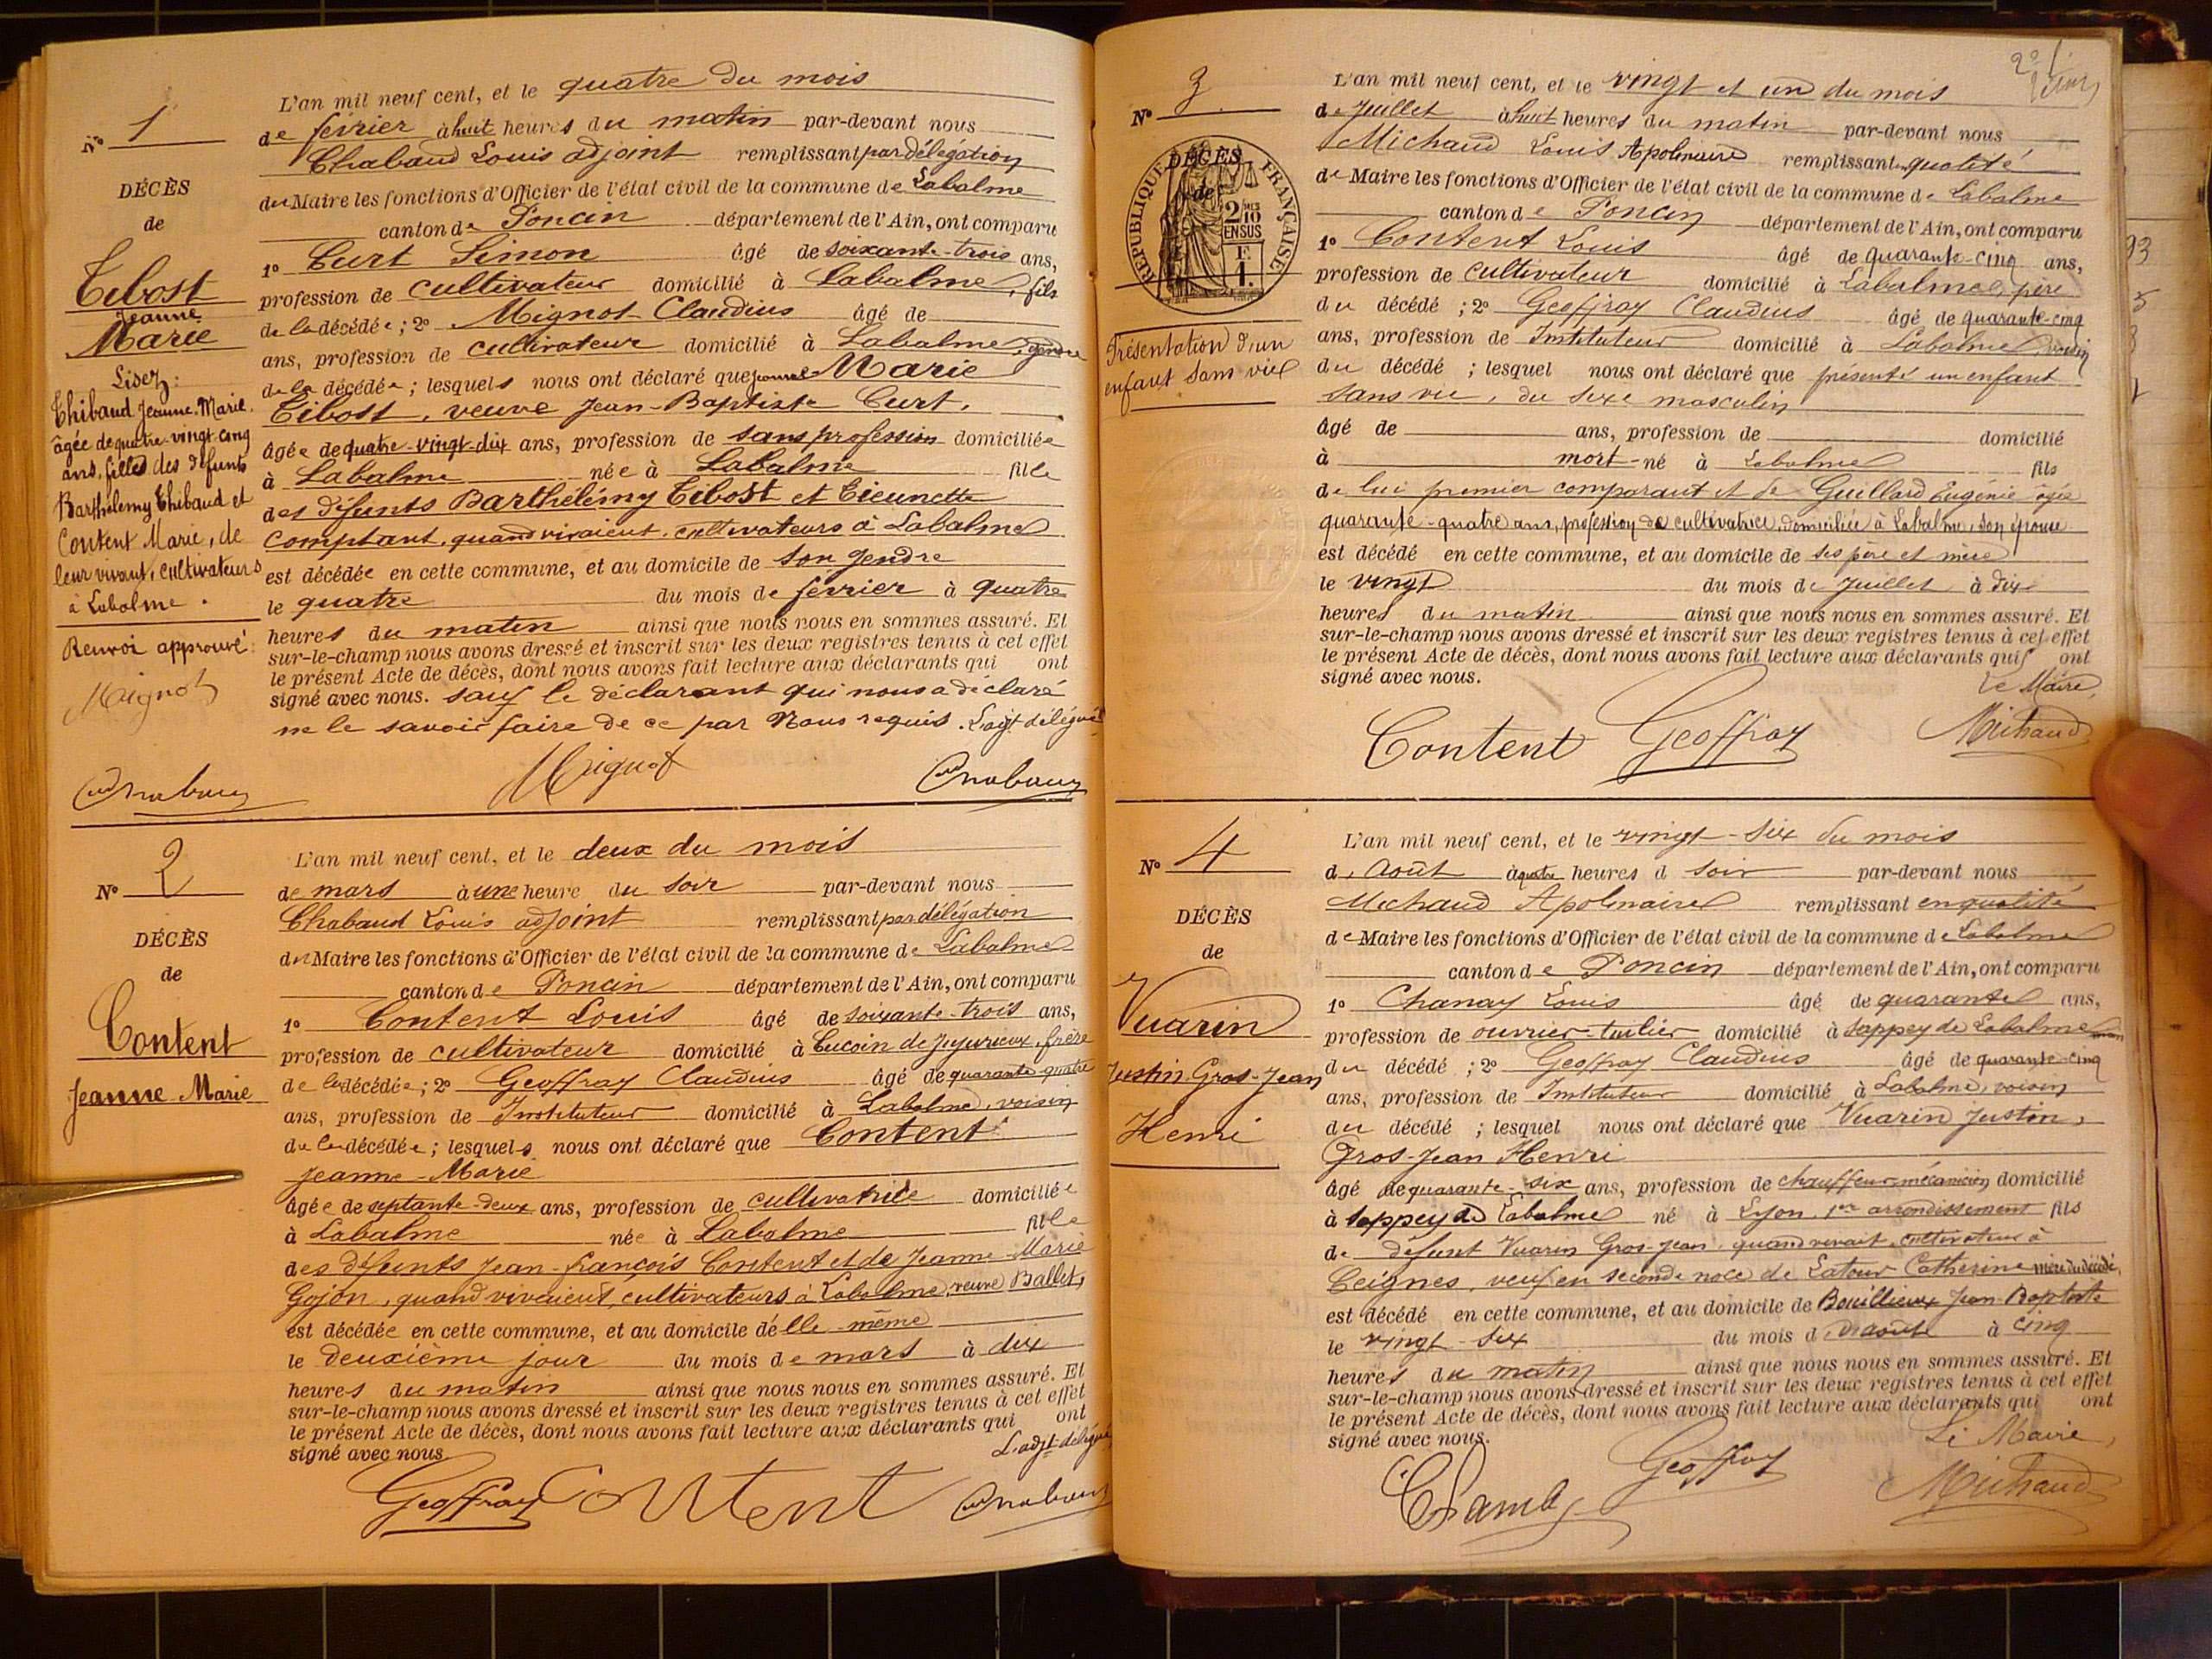 N° 1
DÉCÈS
de
Tibost
Jeanne
Marie
Lisez:
Thibaud Jeanne-Marie.
âgée de quatre-vingt-cinq
ans, filles des défunts
Barthélemy Thibaud et
Content Marie, de
leur vivant, cultivateurs
à Labalme.
Renvoi approuvé:
Mignot
Chabaud
L'an mil neuf cent, et le quatre du mois
de février à huit heures du matin par-devant nous
Chabaud Louis adjoint remplissant par délégation
du Maire les fonctions d'Officier de l'état civil de la commune de Labalme
canton de Poncin département de l'Ain, ont comparu
1° Curt Simon âgé de soixante-trois ans,
profession de cultivateur domicilié à Labalme, fils
de la décédée; 2° Mignot Claudius âgé de
ans, profession de cultivateur domicilié à Labalme, gendre
de la décédée; lesquels nous ont déclaré que Jeanne Marie
Tibost, veuve Jean-Baptiste Curt,
âgée de quatre-vingt-dix ans, profession de sans profession domiciliée
à Labalme née à Labalme fille
des défunts Barthélémy Tibost et Eieunette
comptant, quand vivaient, cultivateurs à Labalme
est décédée en cette commune, et au domicile de son gendre
le quatre du mois de février à quatre
heures du matin ainsi que nous nous en sommes assuré. Et
sur-le-champ nous avons dressé et inscrit sur les deux registres tenus à cet effet
le présent Acte de décès, dont nous avons fait lecture aux déclarants qui ont
signé avec nous. sauf le déclarant qui nous a déclaré
ne le savoir faire de ce par Nous requis. L'adjt délégué
Mignot Chabaud
N° 2
DÉCÈS
de
Content
Jeanne-Marie
L'an mil neuf cent, et le deux du mois
de mars à une heure du soir par-devant nous
Chabaud Louis adjoint remplissant par délégation
du Maire les fonctions d'Officier de l'état civil de la commune de Labalme
canton de Poncin département de l'Ain, ont comparu
1° Content Louis âgé de soixante-trois ans,
profession de cultivateur domicilié à Cucoin de Jujurieux, frère
de la décédée; 2° Geoffray Claudius âgé de quarante-quatre
ans, profession de Instituteur domicilié à Labalme, voisin
de la décédée; lesquels nous ont déclaré que Content
Jeanne-Marie
âgée de septante-deux ans, profession de cultivatrice domiciliée
à Labalme née à Labalme fille
des défunts Jean-François Content et de Jeanne-Marie
Gojon, quand vivaient, cultivateurs à Labalme, veuve Ballet,
est décédée en cette commune, et au domicile d'elle-même
le deuxième jour du mois de mars à dix
heures du matin ainsi que nous nous en sommes assuré. Et
sur-le-champ nous avons dressé et inscrit sur les deux registres tenus à cet effet
le présent Acte de décès, dont nous avons fait lecture aux déclarants qui ont
signé avec nous
L'adjt délégué
Geoffray Content Chabaud
N° 3
DÉCÈS
de
RÉPUBLIQUE FRANÇAISE
2 MES
10
EN SUS
F.
1.
Présentation d'un
enfant sans vie
L'an mil neuf cent, et le vingt et un du mois
de Juillet à huit heures du matin par-devant nous
Michaud Louis Apolinaire remplissant qualité
de Maire les fonctions d'Officier de l'état civil de la commune de Labalme
canton de Poncin département de l'Ain, ont comparu
1° Content Louis âgé de quarante-cinq ans,
profession de cultivateur domicilié à Labalme, père
du décédé; 2° Geoffray Claudius âgé de quarante-cinq
ans, profession de Instituteur domicilié à Labalme, voisin
du décédé; lesquel nous ont déclaré que présenté un enfant
sans vie, du sexe masculin
âgé de ans, profession de domicilié
à mort-né à Labalme fils
de lui premier comparant et de Guillard Eugénie âgée
quarante-quatre ans, profession de cultivatrice, domiciliée à Labalme, son épouse
est décédé en cette commune, et au domicile de ses père et mère
le vingt du mois de Juillet à dix
heures du matin ainsi que nous nous en sommes assuré. Et
sur-le-champ nous avons dressé et inscrit sur les deux registres tenus à cet effet
le présent Acte de décès, dont nous avons fait lecture aux déclarants qui ont
signé avec nous.
Le Maire,
Content Geoffray Michaud
N° 4
DÉCÈS
de
Vuarin
Justin Gros-Jean
Henri
L'an mil neuf cent, et le vingt-six du mois
d'Août à quatre heures d soir par-devant nous
Michaud Apolinaire remplissant en qualité
de Maire les fonctions d'Officier de l'état civil de la commune de Labalme
canton de Poncin département de l'Ain, ont comparu
1° Chanay Louis âgé de quarante ans,
profession de ouvrier-tuilier domicilié à Sappey de Labalme
du décédé; 2° Geoffray Claudius âgé de quarante-cinq
ans, profession de Instituteur domicilié à Labalme, voisin
du décédé; lesquel nous ont déclaré que Vuarin Justin,
Gros-Jean Henri
âgé de quarante-six ans, profession de chauffeur-mécanicien domicilié
à Sappey de Labalme né à Lyon 1er arrondissement fils
de défunt Vuarin Gros-Jean, quand vivait, cultivateur à
Ceignes, veuf en seconde noce de Latour Catherine mère du décédé,
est décédé en cette commune, et au domicile de Bouillieux Jean-Baptiste
le vingt-six du mois d'août à cinq
heures du matin ainsi que nous nous en sommes assuré. Et
sur-le-champ nous avons dressé et inscrit sur les deux registres tenus à cet effet
le présent Acte de décès, dont nous avons fait lecture aux déclarants qui ont
signé avec nous.
Le Maire,
Chanay Geoffray Michaud